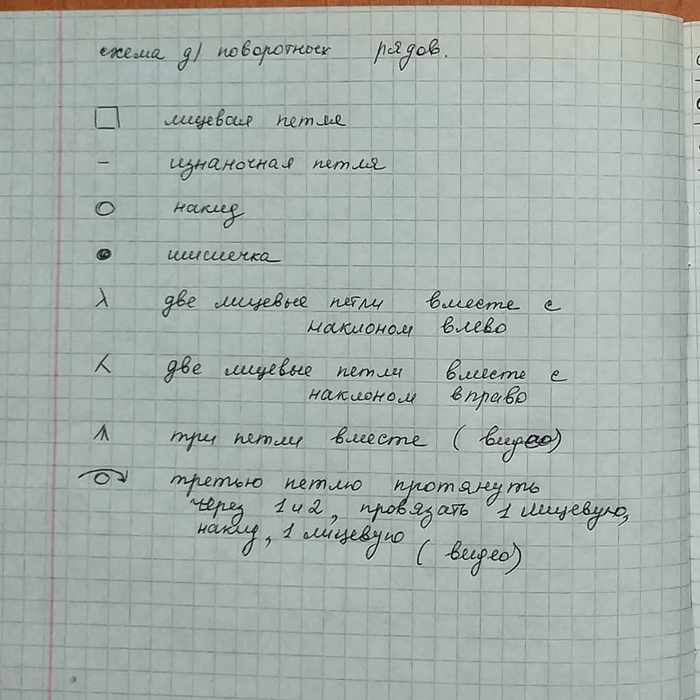 схема д/ поворотных рядов.
□ лицевая петля
– изнаночная петля
○ накид
● шишечка
λ две лицевые петли вместе с
наклоном влево
две лицевые петли вместе с
наклоном вправо
три петли вместе (видео)
третью петлю протянуть
через 1 и 2, провязать 1 лицевую,
накид, 1 лицевую
(видео)